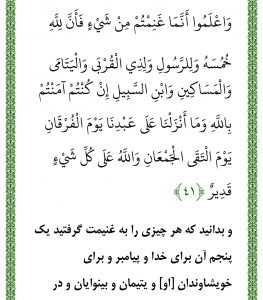 وَاعْلَمُوا أَنَّمَا غَنِمْتُمْ مِنْ شَيْءٍ فَأَنَّ لِلَّهِ
خُمُسَهُ وَلِلرَّسُولِ وَلِذِي الْقُرْبَى وَالْيَتَامَى
وَالْمَسَاكِينِ وَابْنِ السَّبِيلِ إِنْ كُنْتُمْ آمَنْتُمْ
بِاللَّهِ وَمَا أَنْزَلْنَا عَلَى عَبْدِنَا يَوْمَ الْفُرْقَانِ
يَوْمَ الْتَقَى الْجَمْعَانِ وَاللَّهُ عَلَى كُلِّ شَيْءٍ
قَدِيرٌ ﴿٤١﴾
و بدانید که هر چیزی را به غنیمت گرفتید یک
پنجم آن برای خدا و پیامبر و برای
خویشاوندان [او] و یتیمان و بینوایان و در